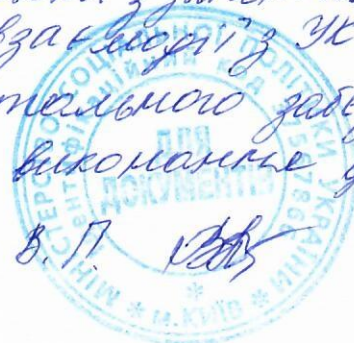 взаємодії з УК
тального забе
виконання у
В. П.
МІНІСТЕРСТВО СОЦІАЛЬНОЇ ПОЛІТИКИ УКРАЇНИ * м. КИЇВ *
Ідентифікаційний код
ДЛЯ
ДОКУМЕНТІВ